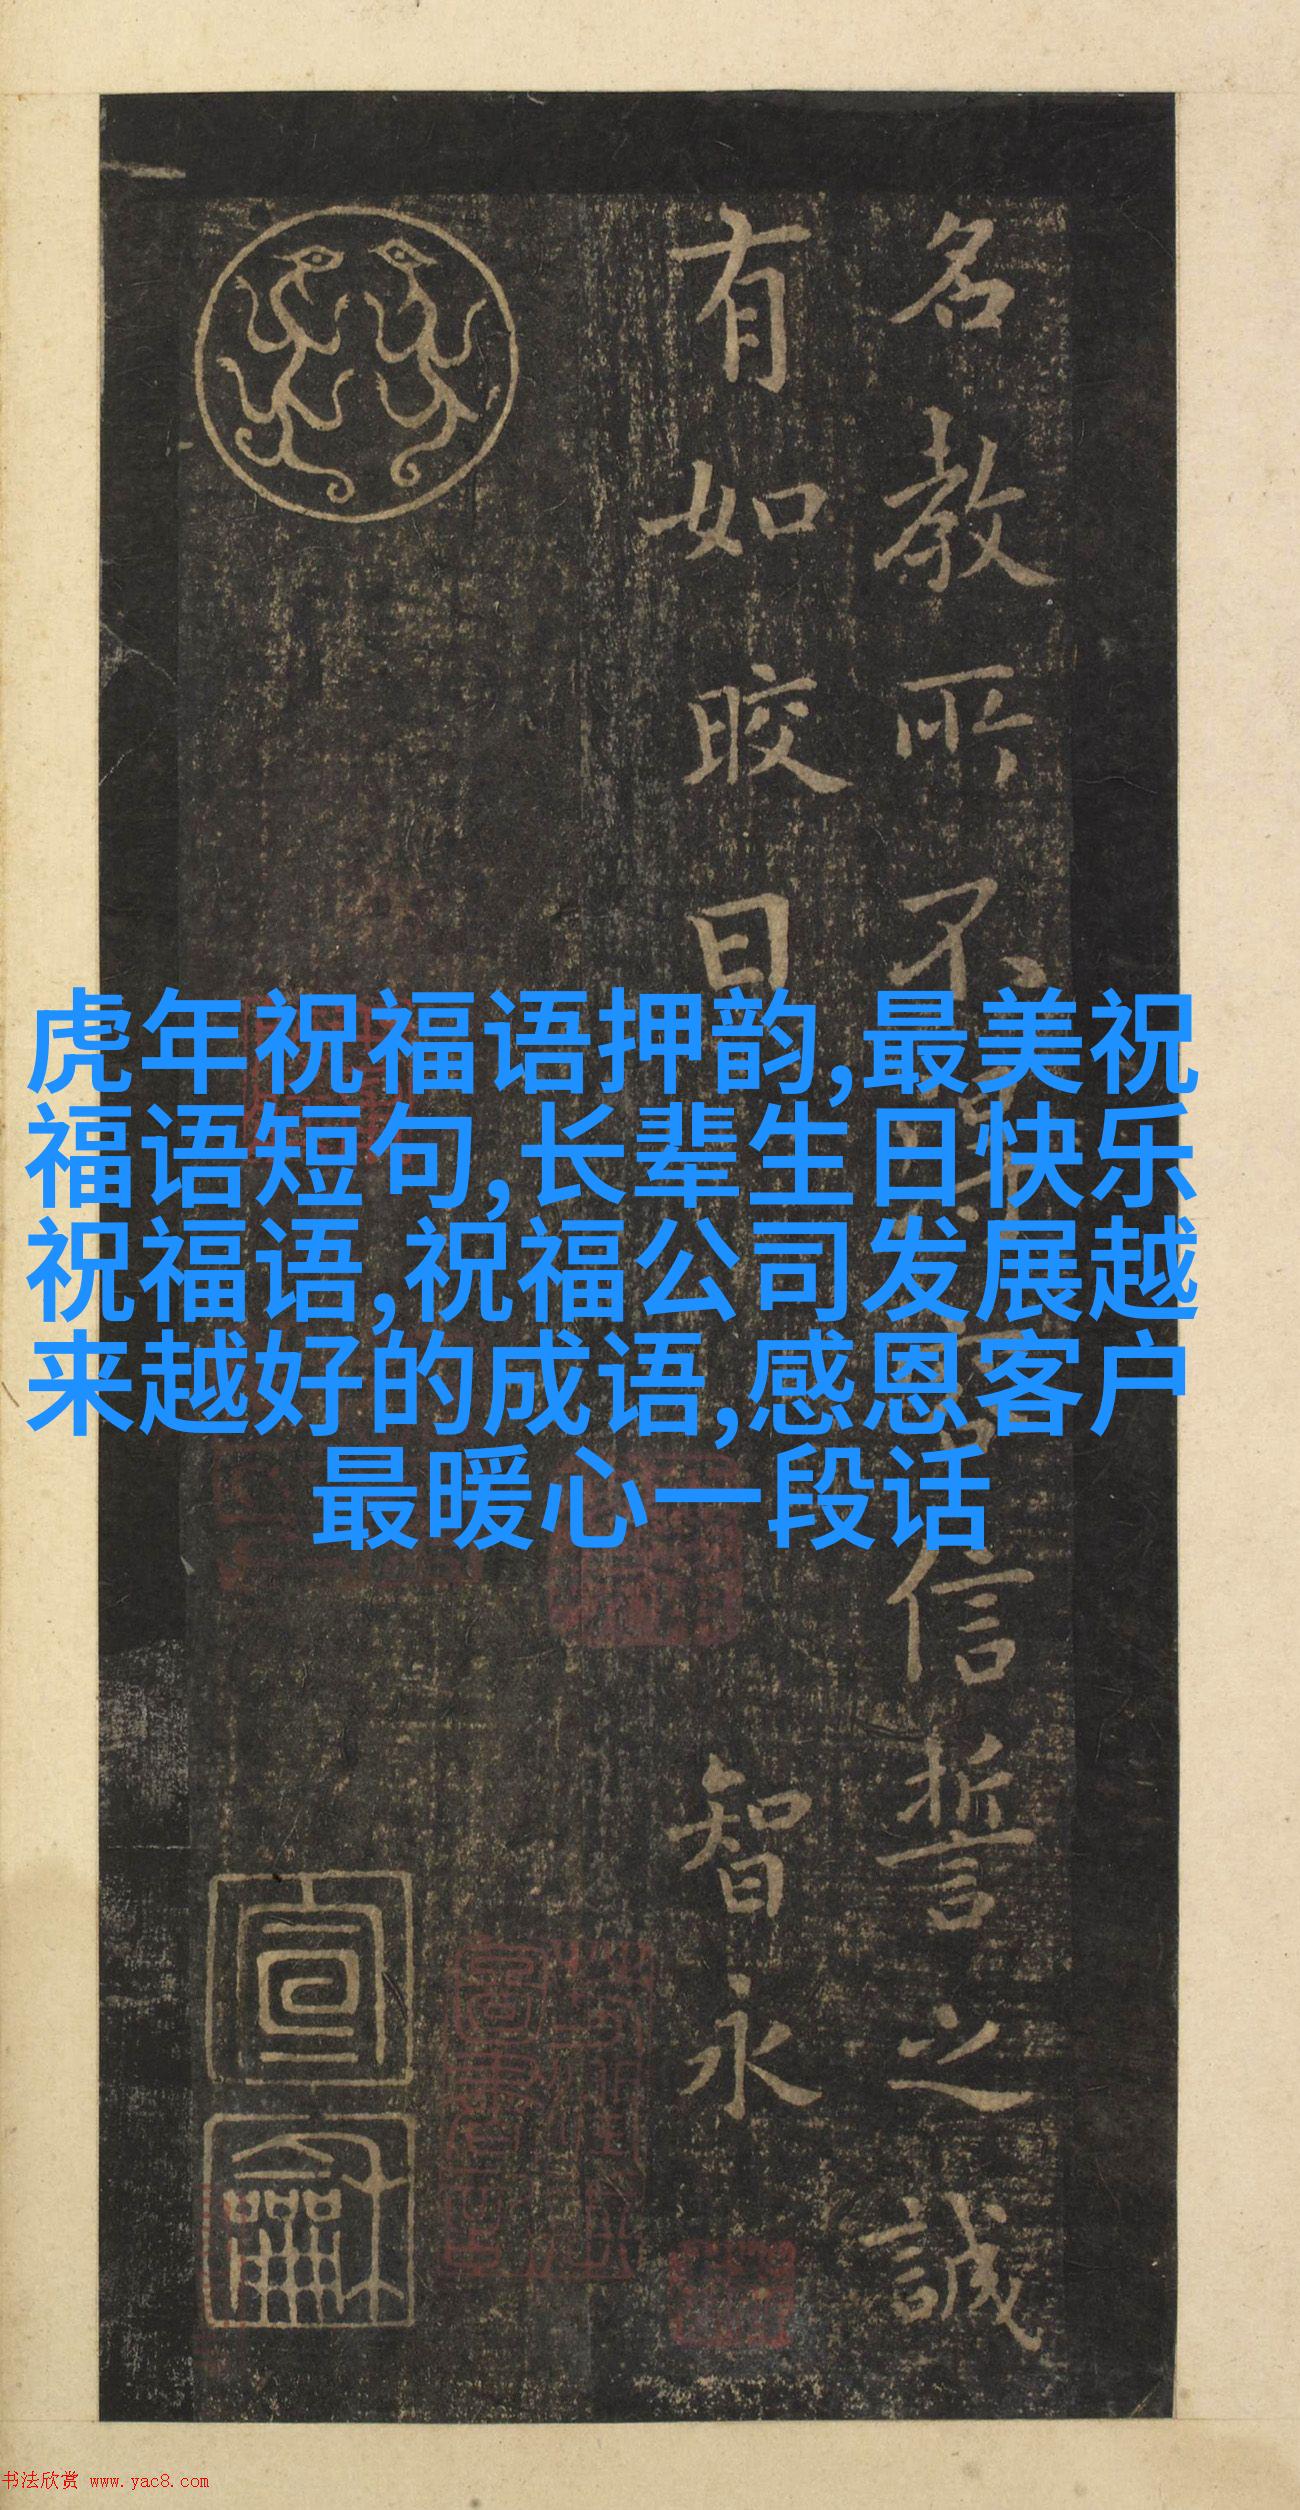 名教所不
信誓之誠
有如晈日
智永
虎年祝福语押韵,最美祝
福语短句,长辈生日快乐
祝福语,祝福公司发展越
来越好的成语,感恩客户
最暖心一段话
书法欣赏 www.yac8.com